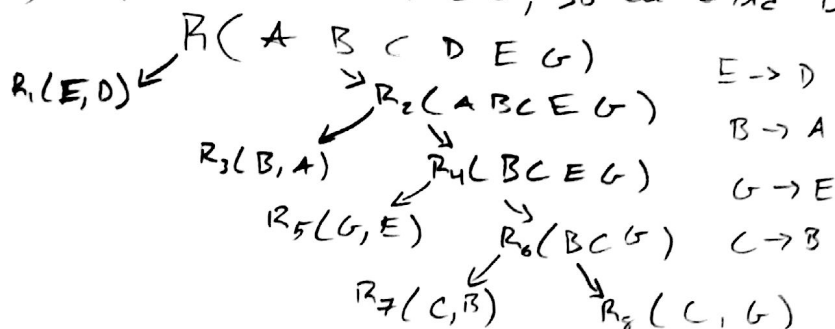 R( A B C D E G)
R₁(E,D)
R₂( ABCEG)
R₃(B,A)
R₄( BCEG)
R₅(G,E)
R₆(BCG)
R₇(C,B)
R₈( C, G)
E -> D
B -> A
G -> E
C -> B